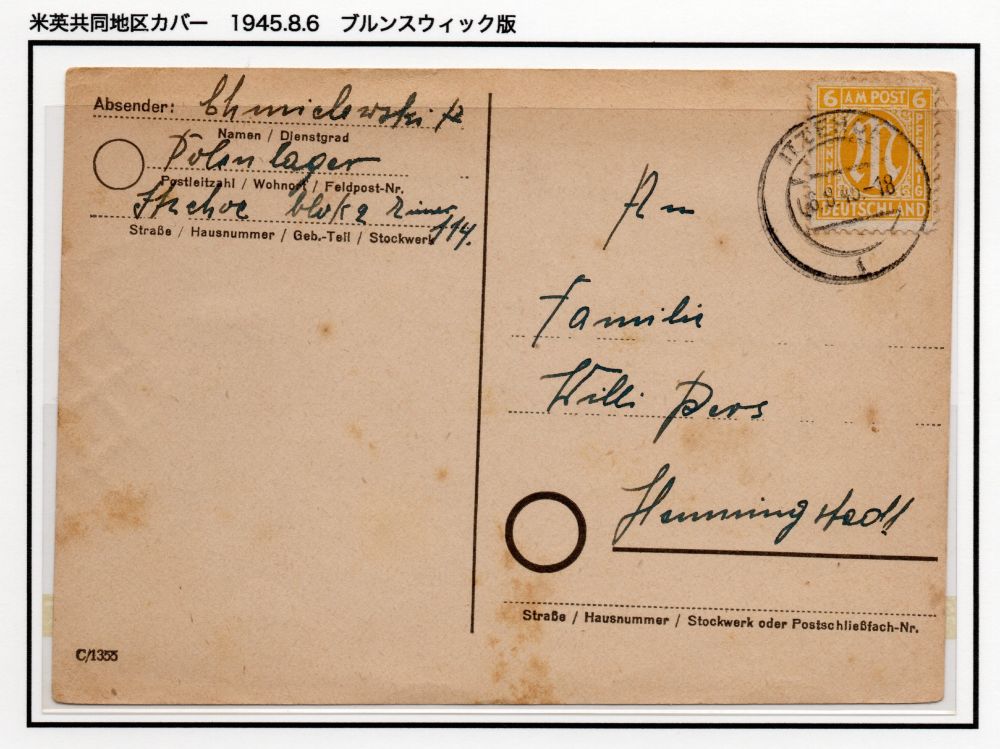 米英共同地区カバー　1945.8.6　ブルンスウィック版
Absender: Chmielewski
Namen / Dienstgrad
Polenlager
Postleitzahl / Wohnort / Feldpost-Nr.
Itzehoe blok 2 Zimer 114.
Straße / Hausnummer / Geb.-Teil / Stockwerk
6 AM POST 6
PFENNIG PFENNIG
DEUTSCHLAND
ITZEHOE
-18
An
Familie
Willi Pers
Hemmingstedt
Straße / Hausnummer / Stockwerk oder Postschließfach-Nr.
C/1355